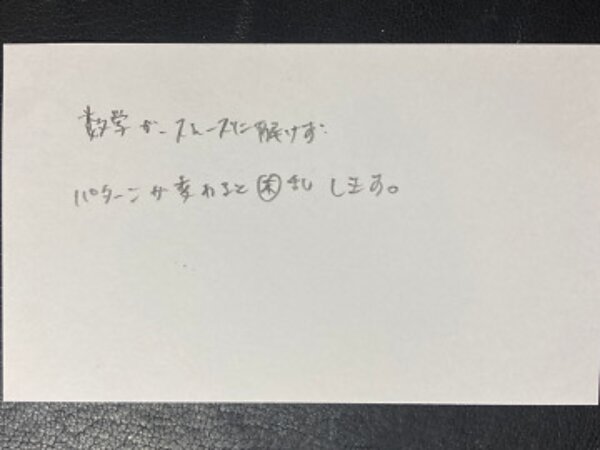 数学がスムーズに解けず
パターンが変わると困乱します。